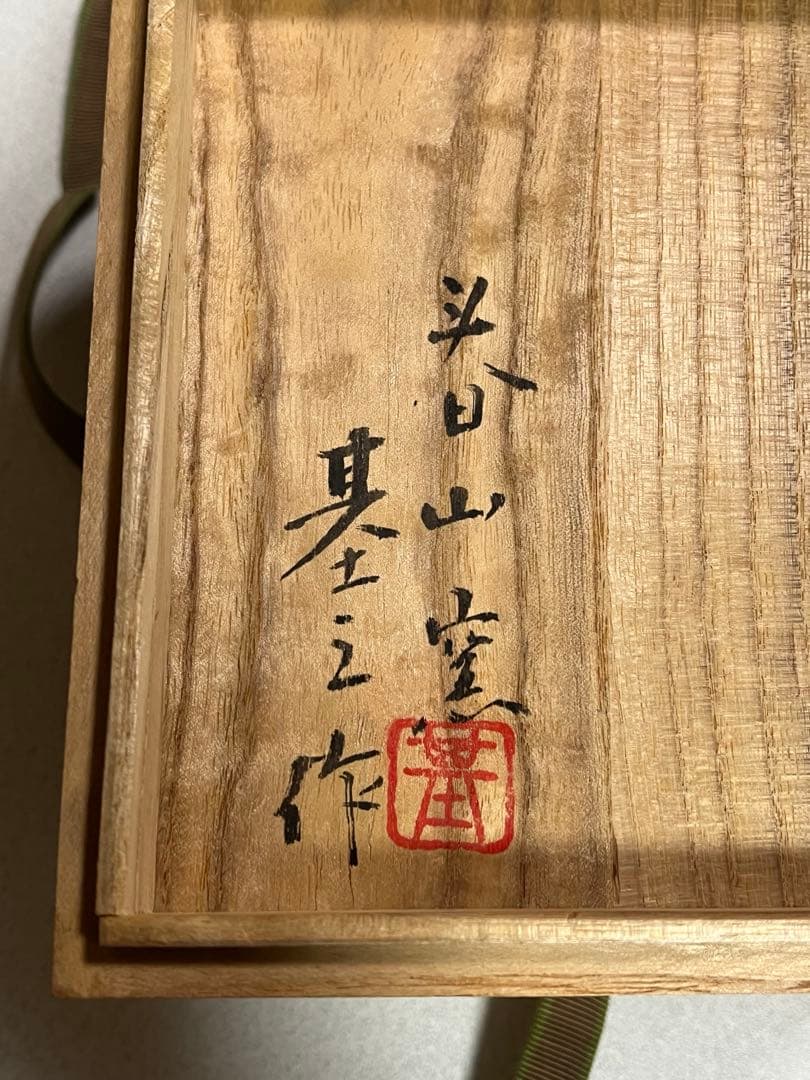 春山窯
基之作
基